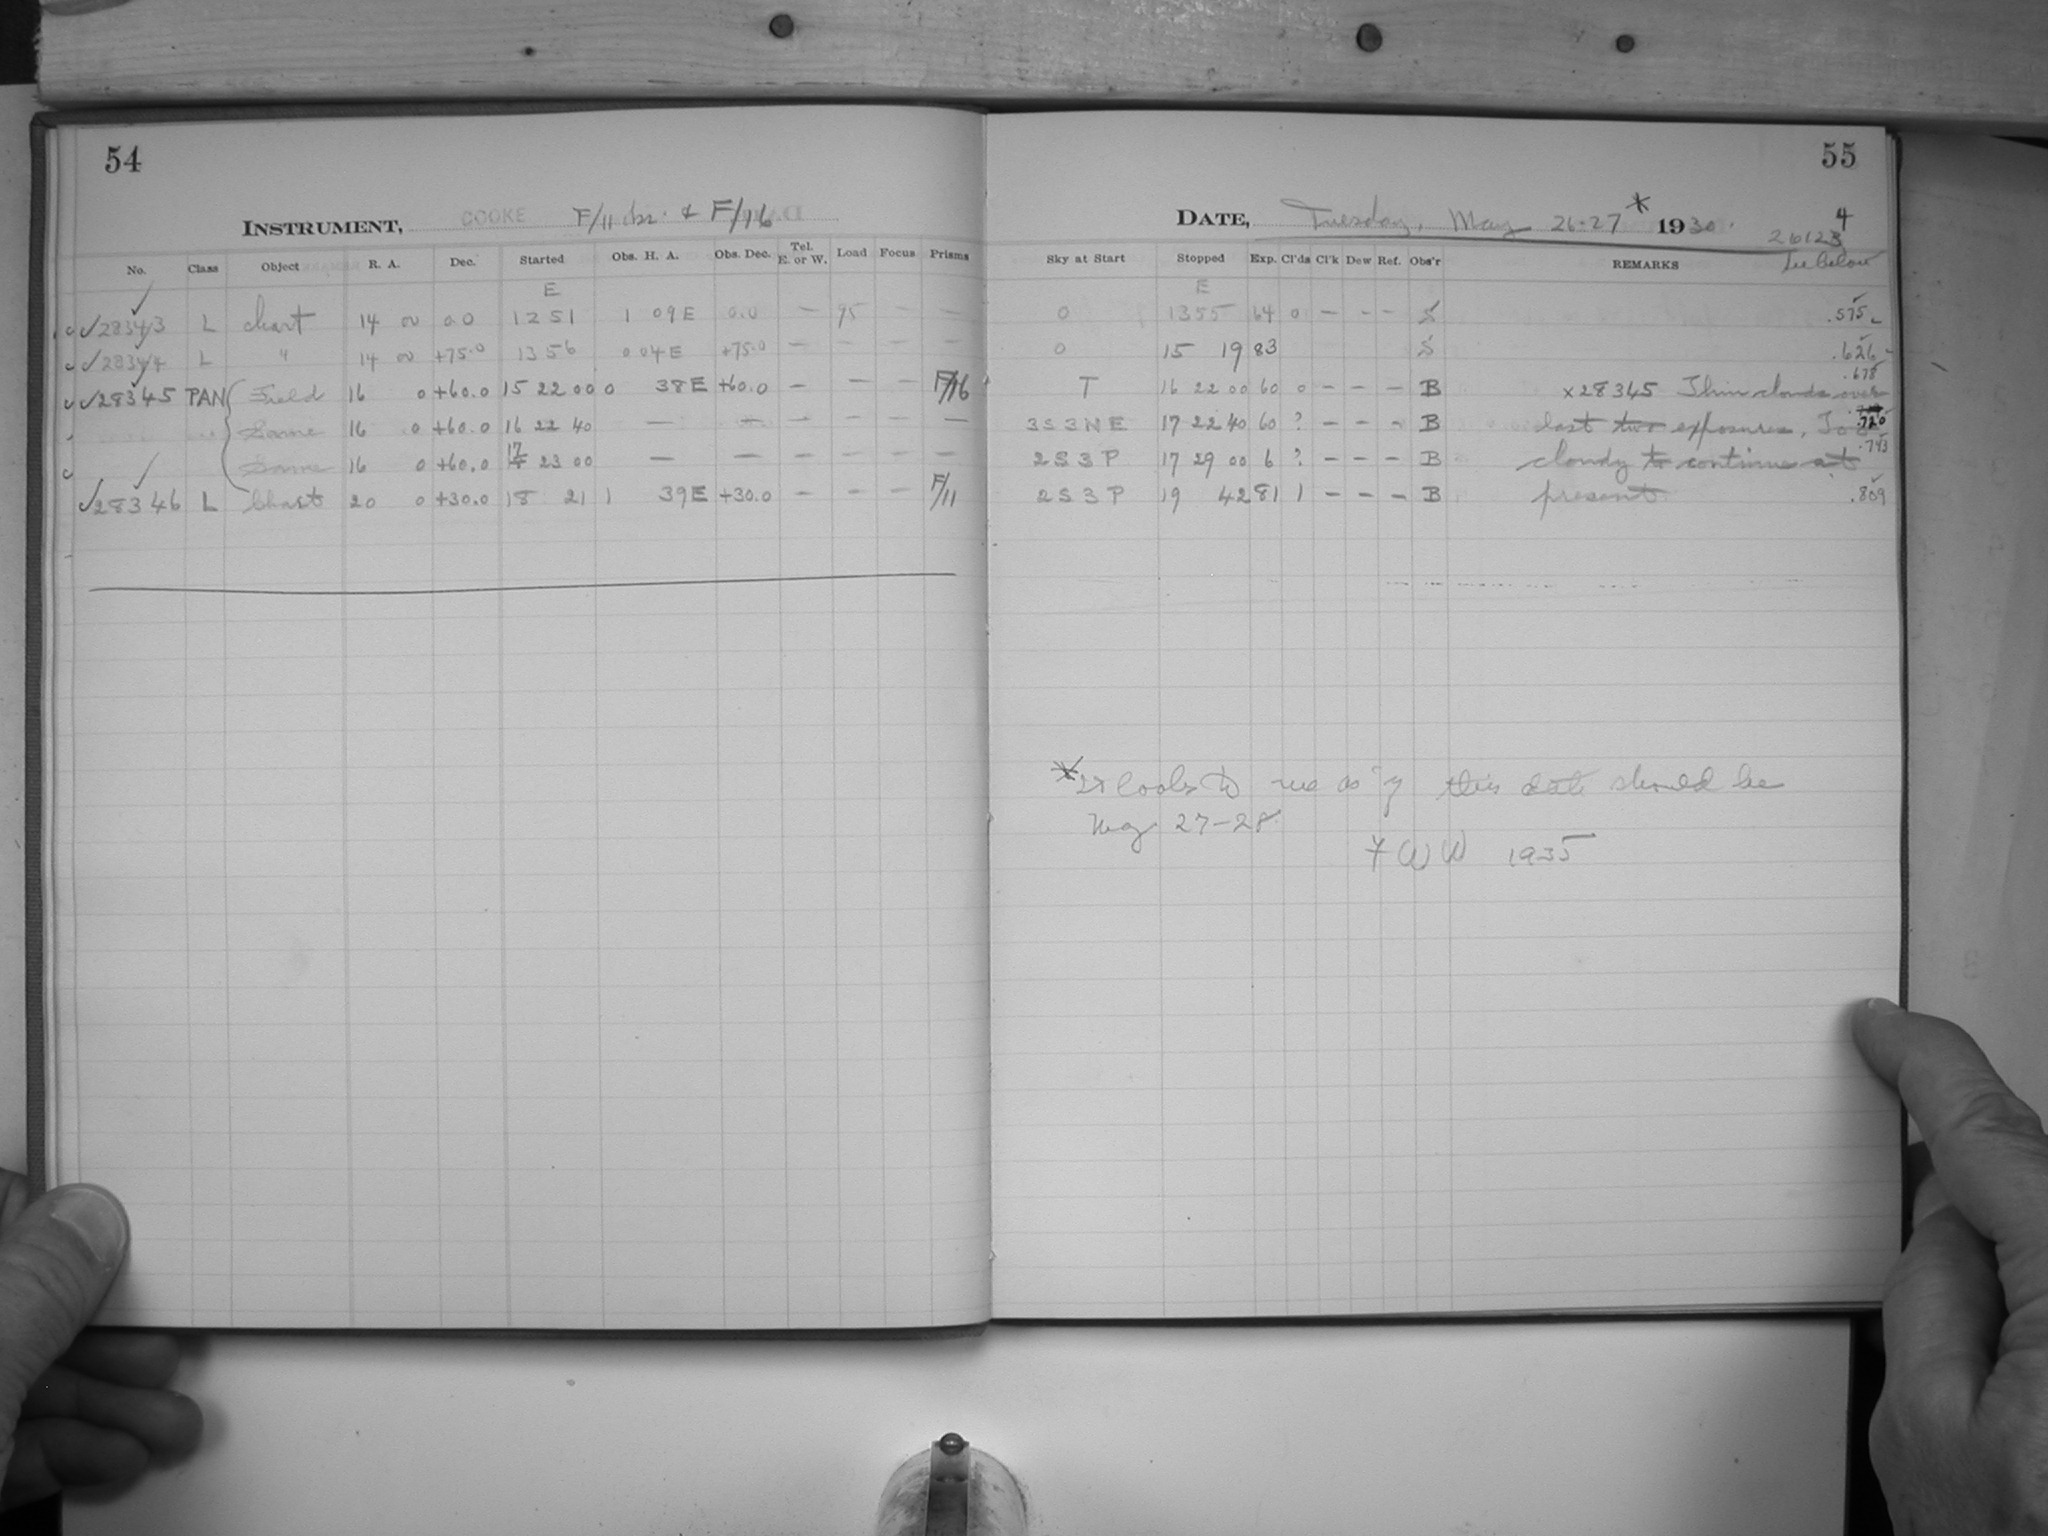 54
INSTRUMENT, COOKE F/11 & F/16
No. Class Object R. A. Dec. Started Obs. H. A. Obs. Dec. Tel. E. or W. Load Focus Prisms
E
✓28343 L chart 14 00 0.0 12 51 1 09 E 0.0 — 95 — —
✓28344 L " 14 00 +75.0 13 56 0 04 E +75.0 — — — —
✓28345 PAN Field 16 0 +60.0 15 22 00 0 38 E +60.0 — — — F/16
Same 16 0 +60.0 16 22 40 — — — — — —
Same 16 0 +60.0 17 23 00 — — — — — —
✓28346 L Chart 20 0 +30.0 18 21 1 39 E +30.0 — — — F/11
55
DATE, Tuesday, May 26-27 * 1930.
4
26123
See below
Sky at Start Stopped Exp. Cl'ds Cl'k Dew Ref. Obs'r REMARKS
E
0 13 55 64 0 — — — S .575
0 15 19 83 S .626
.678
T 16 22 00 60 0 — — — B x 28345 Thin clouds over
3S3NE 17 22 40 60 ? — — — B last two exposures. Too .720
2S3P 17 29 00 6 ? — — — B cloudy to continue at .743
2S3P 19 42 81 1 — — — B present .809
* It looks to me as if this date should be
May 27-28.
FWW 1935